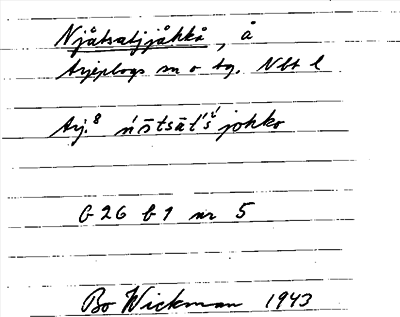 Njåtsatjjåkkå, å
Arjeplogs sn o tg. Nbt l
Arj.8 ńɔ̄tsāt́š́ johko
G 26 b 1 nr 5
Bo Wickman 1943